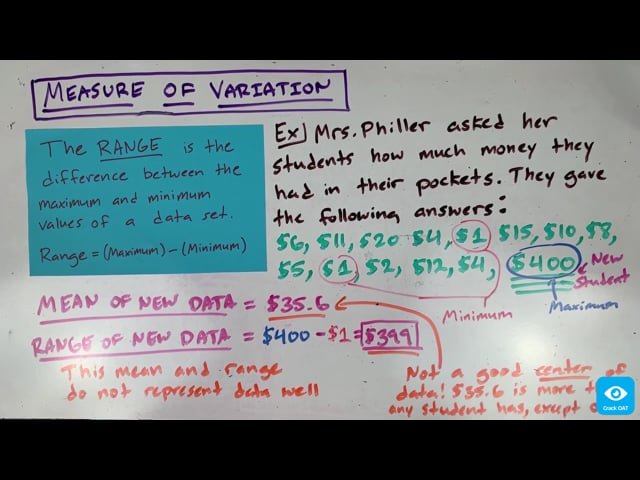 MEASURE OF VARIATION
The RANGE is the
difference between the
maximum and minimum
values of a data set.
Range = (Maximum) - (Minimum)
Ex) Mrs. Philler asked her
students how much money they
had in their pockets. They gave
the following answers:
$6, $11, $20 $4, $1, $15, $10, $8,
$5, $1, $2, $12, $4, $400
New
Student
Minimum
Maximum
MEAN OF NEW DATA = $35.6
RANGE OF NEW DATA = $400 - $1 = $399
This mean and range
do not represent data well
Not a good center of
data! $35.6 is more
any student has, except
Crack OAT